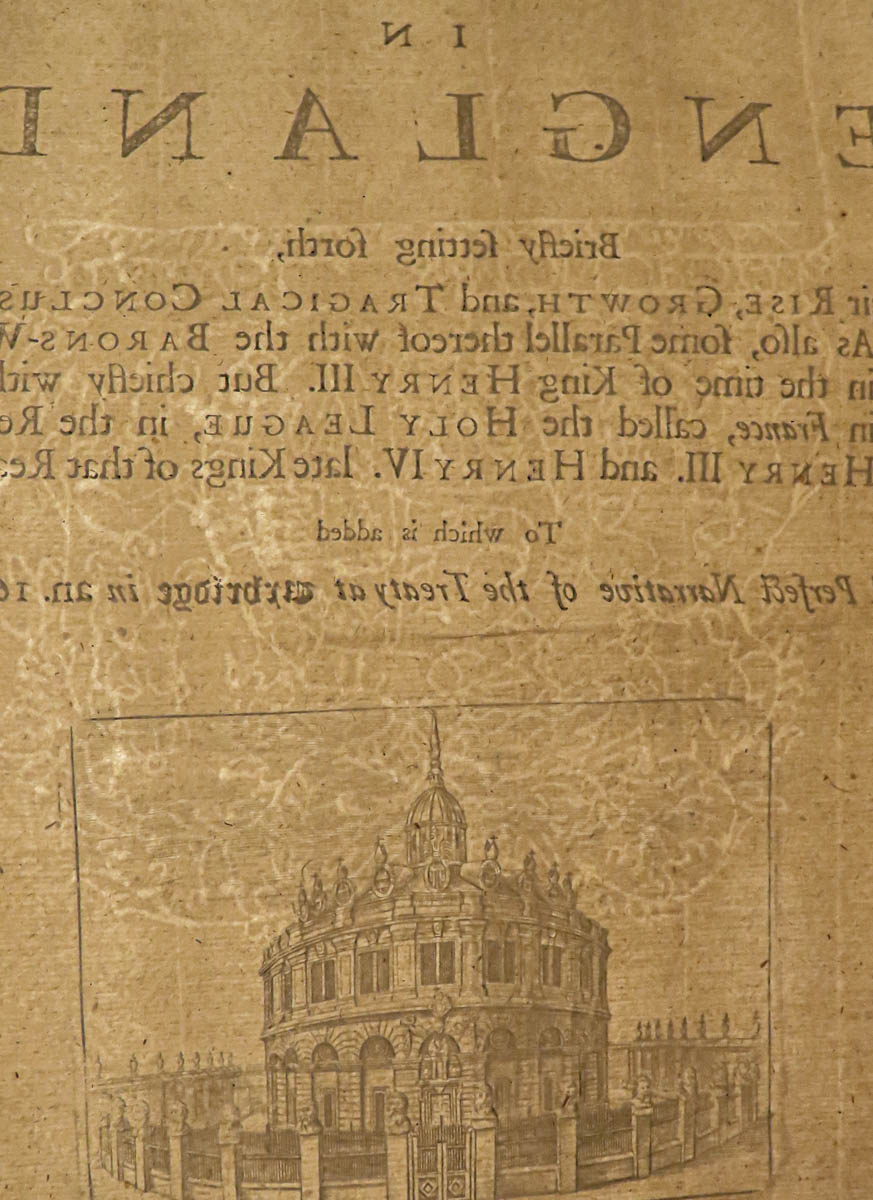 IN
ENGLAND
Briefly ſetting forth,
ir RISE, GROWTH, and TRAGICAL CONCLUS
As alſo, ſome Parallel thereof with the BARONS-W
in the time of King HENRY III. But chiefly with
in France, called the HOLY LEAGUE, in the Re
HENRY III. and HENRY IV. late Kings of that Rea
To which is added
Perfect Narrative of the Treaty at Uxbridge in an. 16